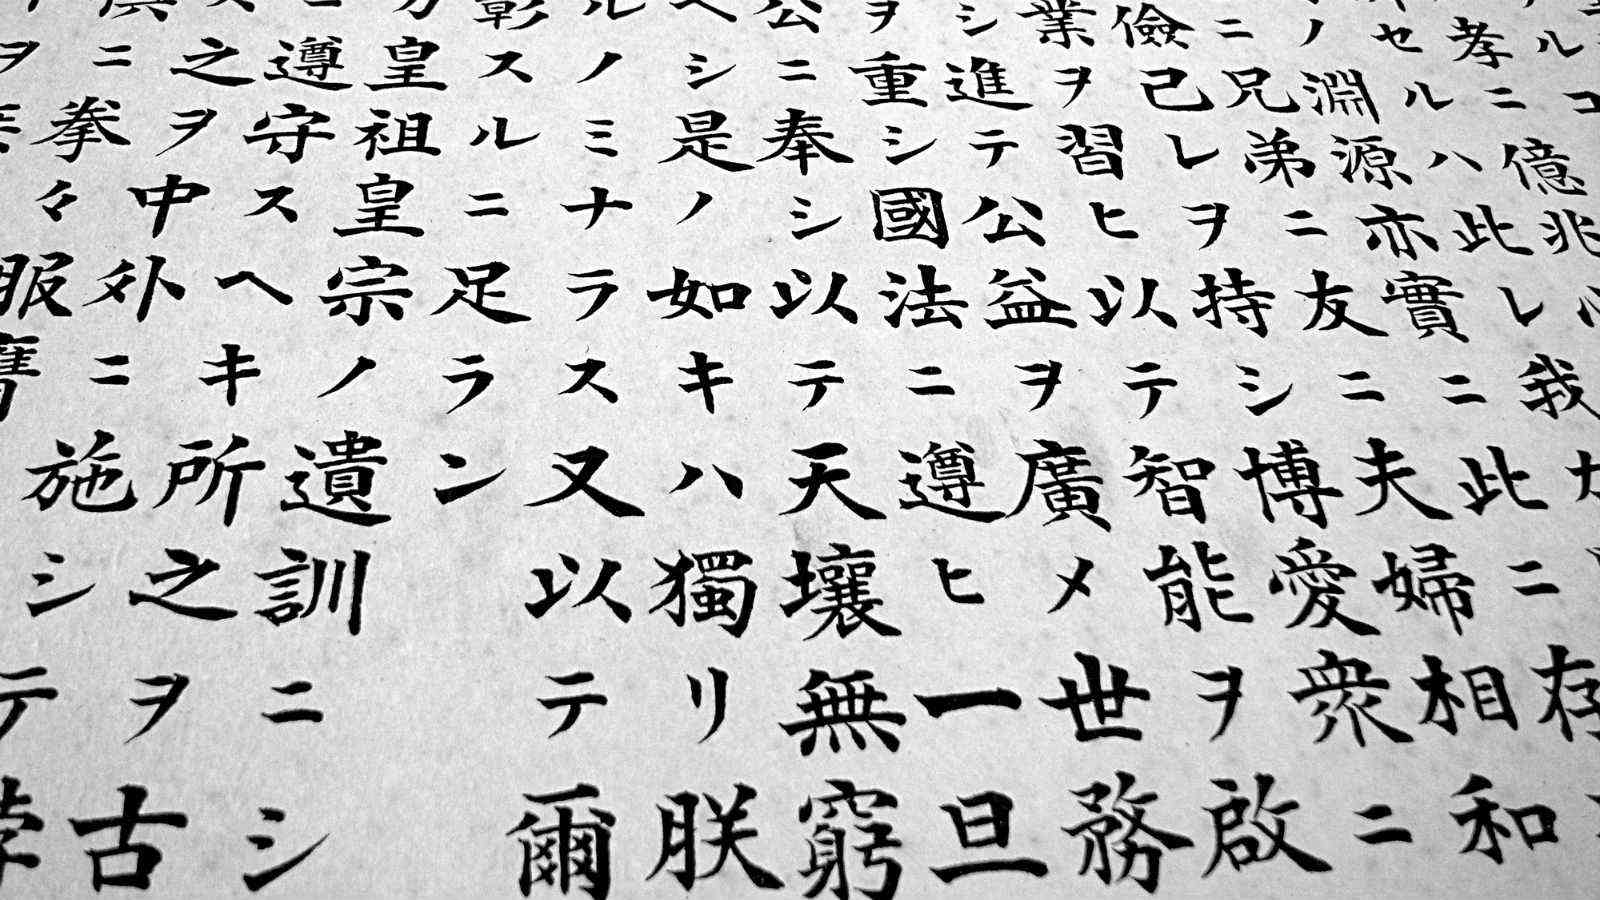 ルコ
孝ニ億兆心
セルハ此レ我カ
ノ淵源亦實ニ此ニ存
ニ兄弟ニ友ニ夫婦相和
儉己レヲ持シ博愛衆ニ
業ヲ習ヒ以テ智能ヲ啓
シ進テ公益ヲ廣メ世務
ヲ重シ國法ニ遵ヒ一旦
公ニ奉シ以テ天壤無窮
ヘシ是ノ如キハ獨リ朕
ルノミナラス又以テ爾
彰スルニ足ラン
カ皇祖皇宗ノ遺訓ニシ
ニ遵守スヘキ所之ヲ古
ス之ヲ中外ニ施シテ悖
倶ニ拳々服膺
ヲ